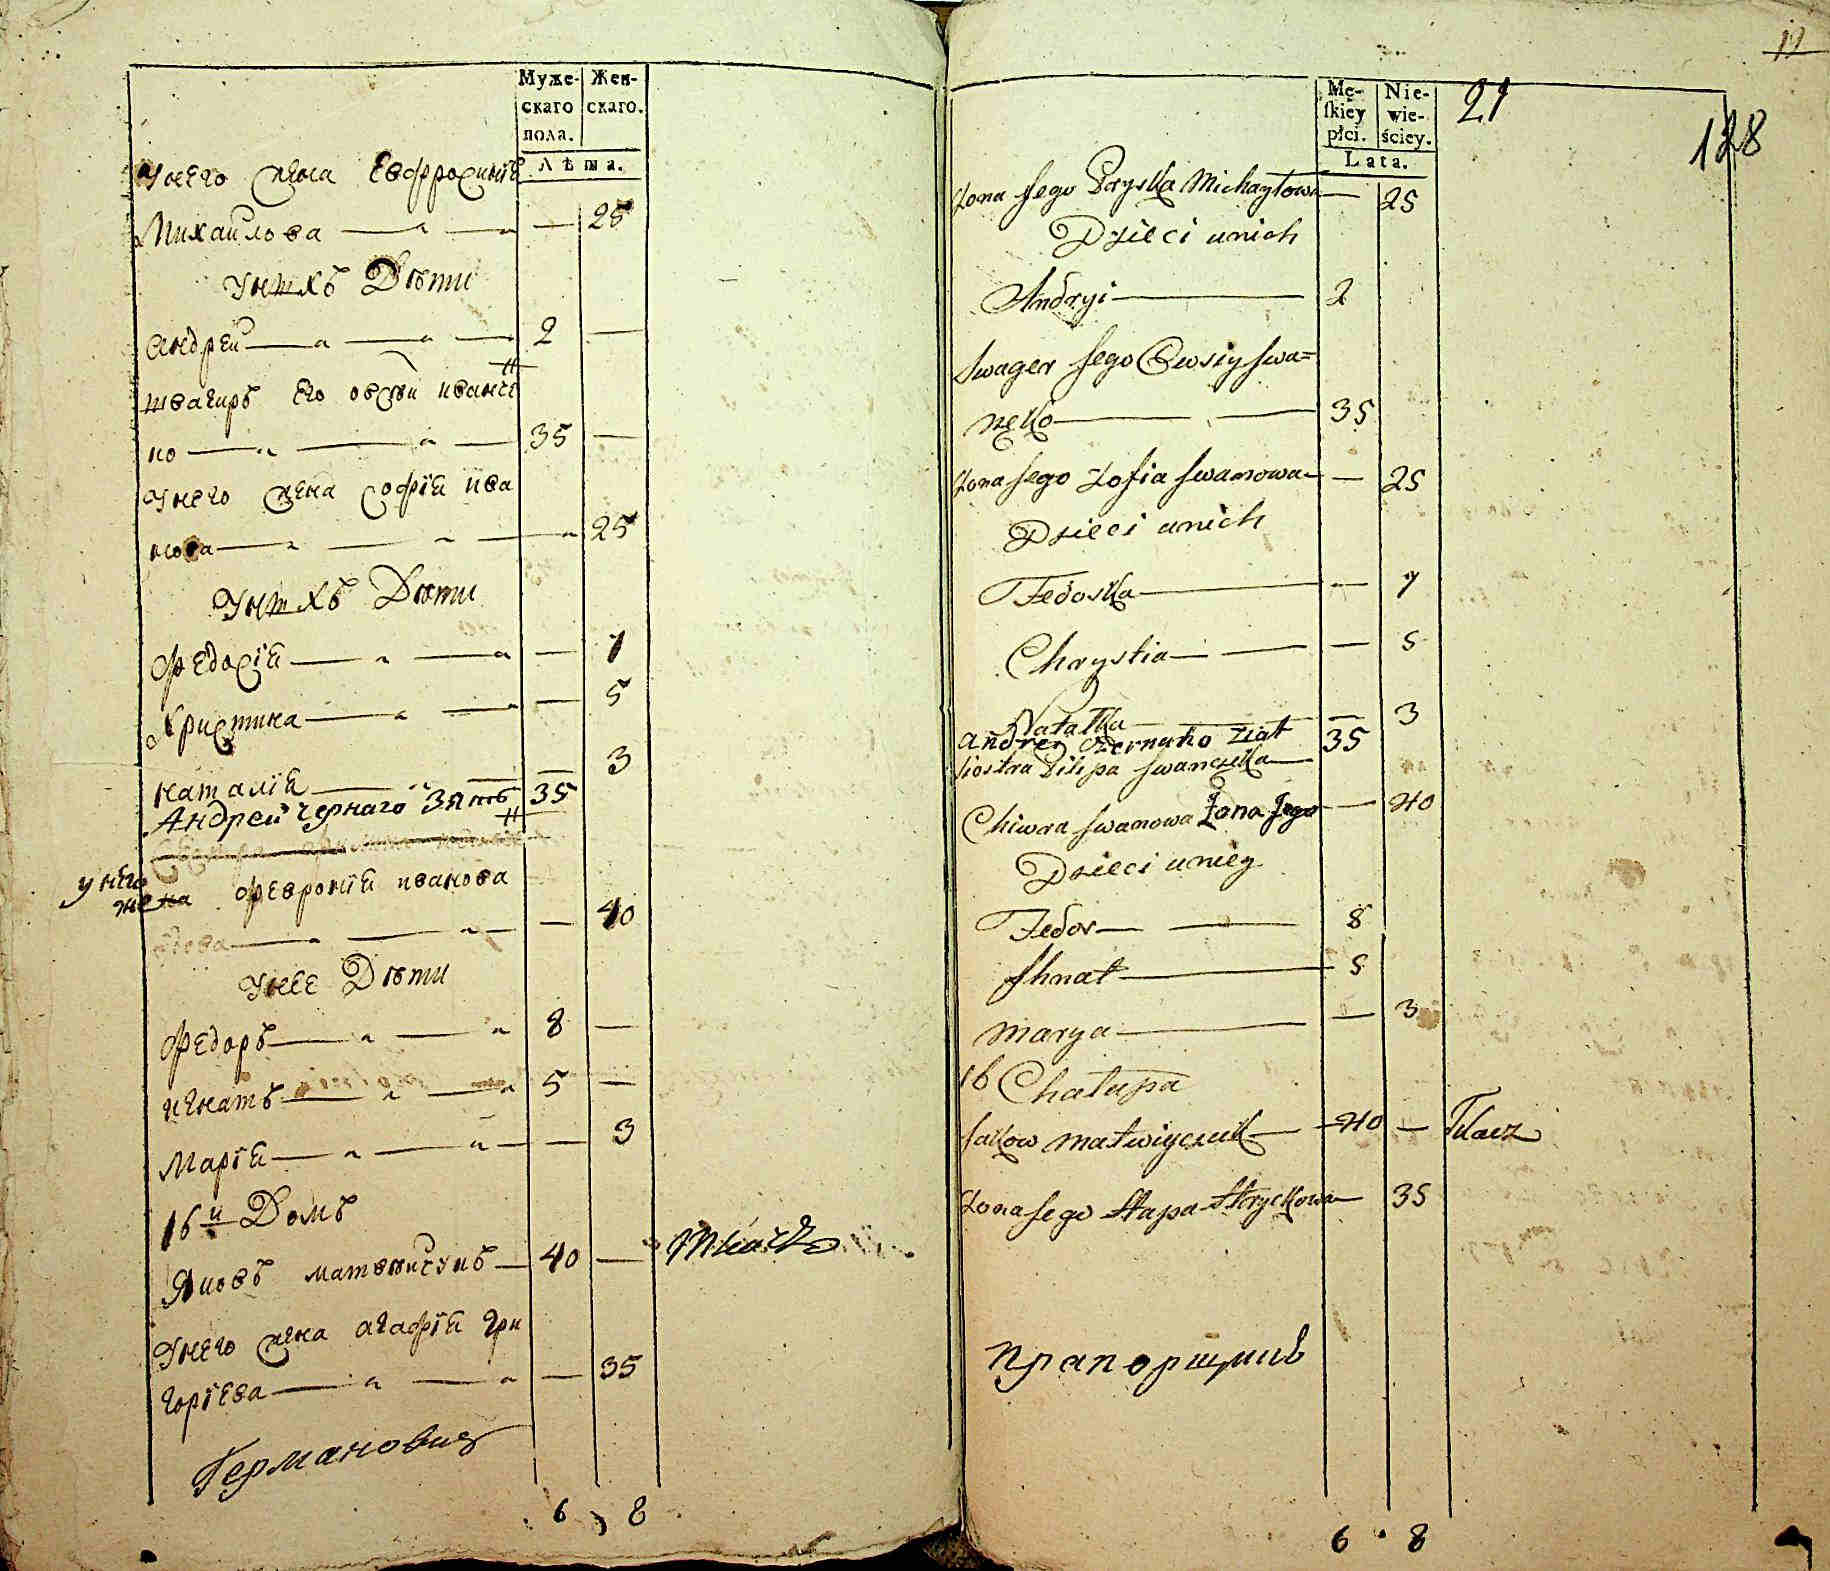 Муже-
скаго
пола.
Жен-
скаго.
Лѣта.
У него жена Евфросинїя
Михайлова — — — 25
У нихъ Дѣти
Андрей — — — 2 —
швагиръ его овсѣй иванѣ
ко — — — 35 —
У него жена Софїя ива
нова — — — 25
У нихъ Дѣти
Федосїя — — — 7
Христина — — — 5
Наталїя — — — 3
Андрей Чернаго Зять 35
у него
жена Февронїя иванова
— — — 40
У нее Дѣти
Федоръ — — — 8 —
Игнатъ — — — 5 —
Марїя — — — 3
16й Домъ
Яковъ матвѣйчукъ — 40 — Ткачъ
У него жена агафїя Гри
горїева — — — 35
Германовичъ
6 8
11
21
128
Mę-
skiey
płci.
Nie-
wie-
ściey.
Lata.
Żona Jego Pryska Michayłowa — 25
Dzieci u nich
Andryi — 2
Swager Jego Owsiy Jwa=
neko — — 35
Żona Jego Zofia Jwanowa — — 25
Dzieci u nich
Fedoska — — 7
Chrystia — — — 5
Natałka — — 3
Andrey Czernuho Ziat 35
Siostra Pilipa Jwaneyka —
Chiwra Jwanowa Żona Jego — 40
Dzieci u niey
Fedor — — 8
Jhnat — 5
Marya — — 3
16 Chałupa
Jakow Matwiyczuk — 40 — Tkacz
Żona Jego Hapa Hryckowa — 35
Прапорщикъ
6 8